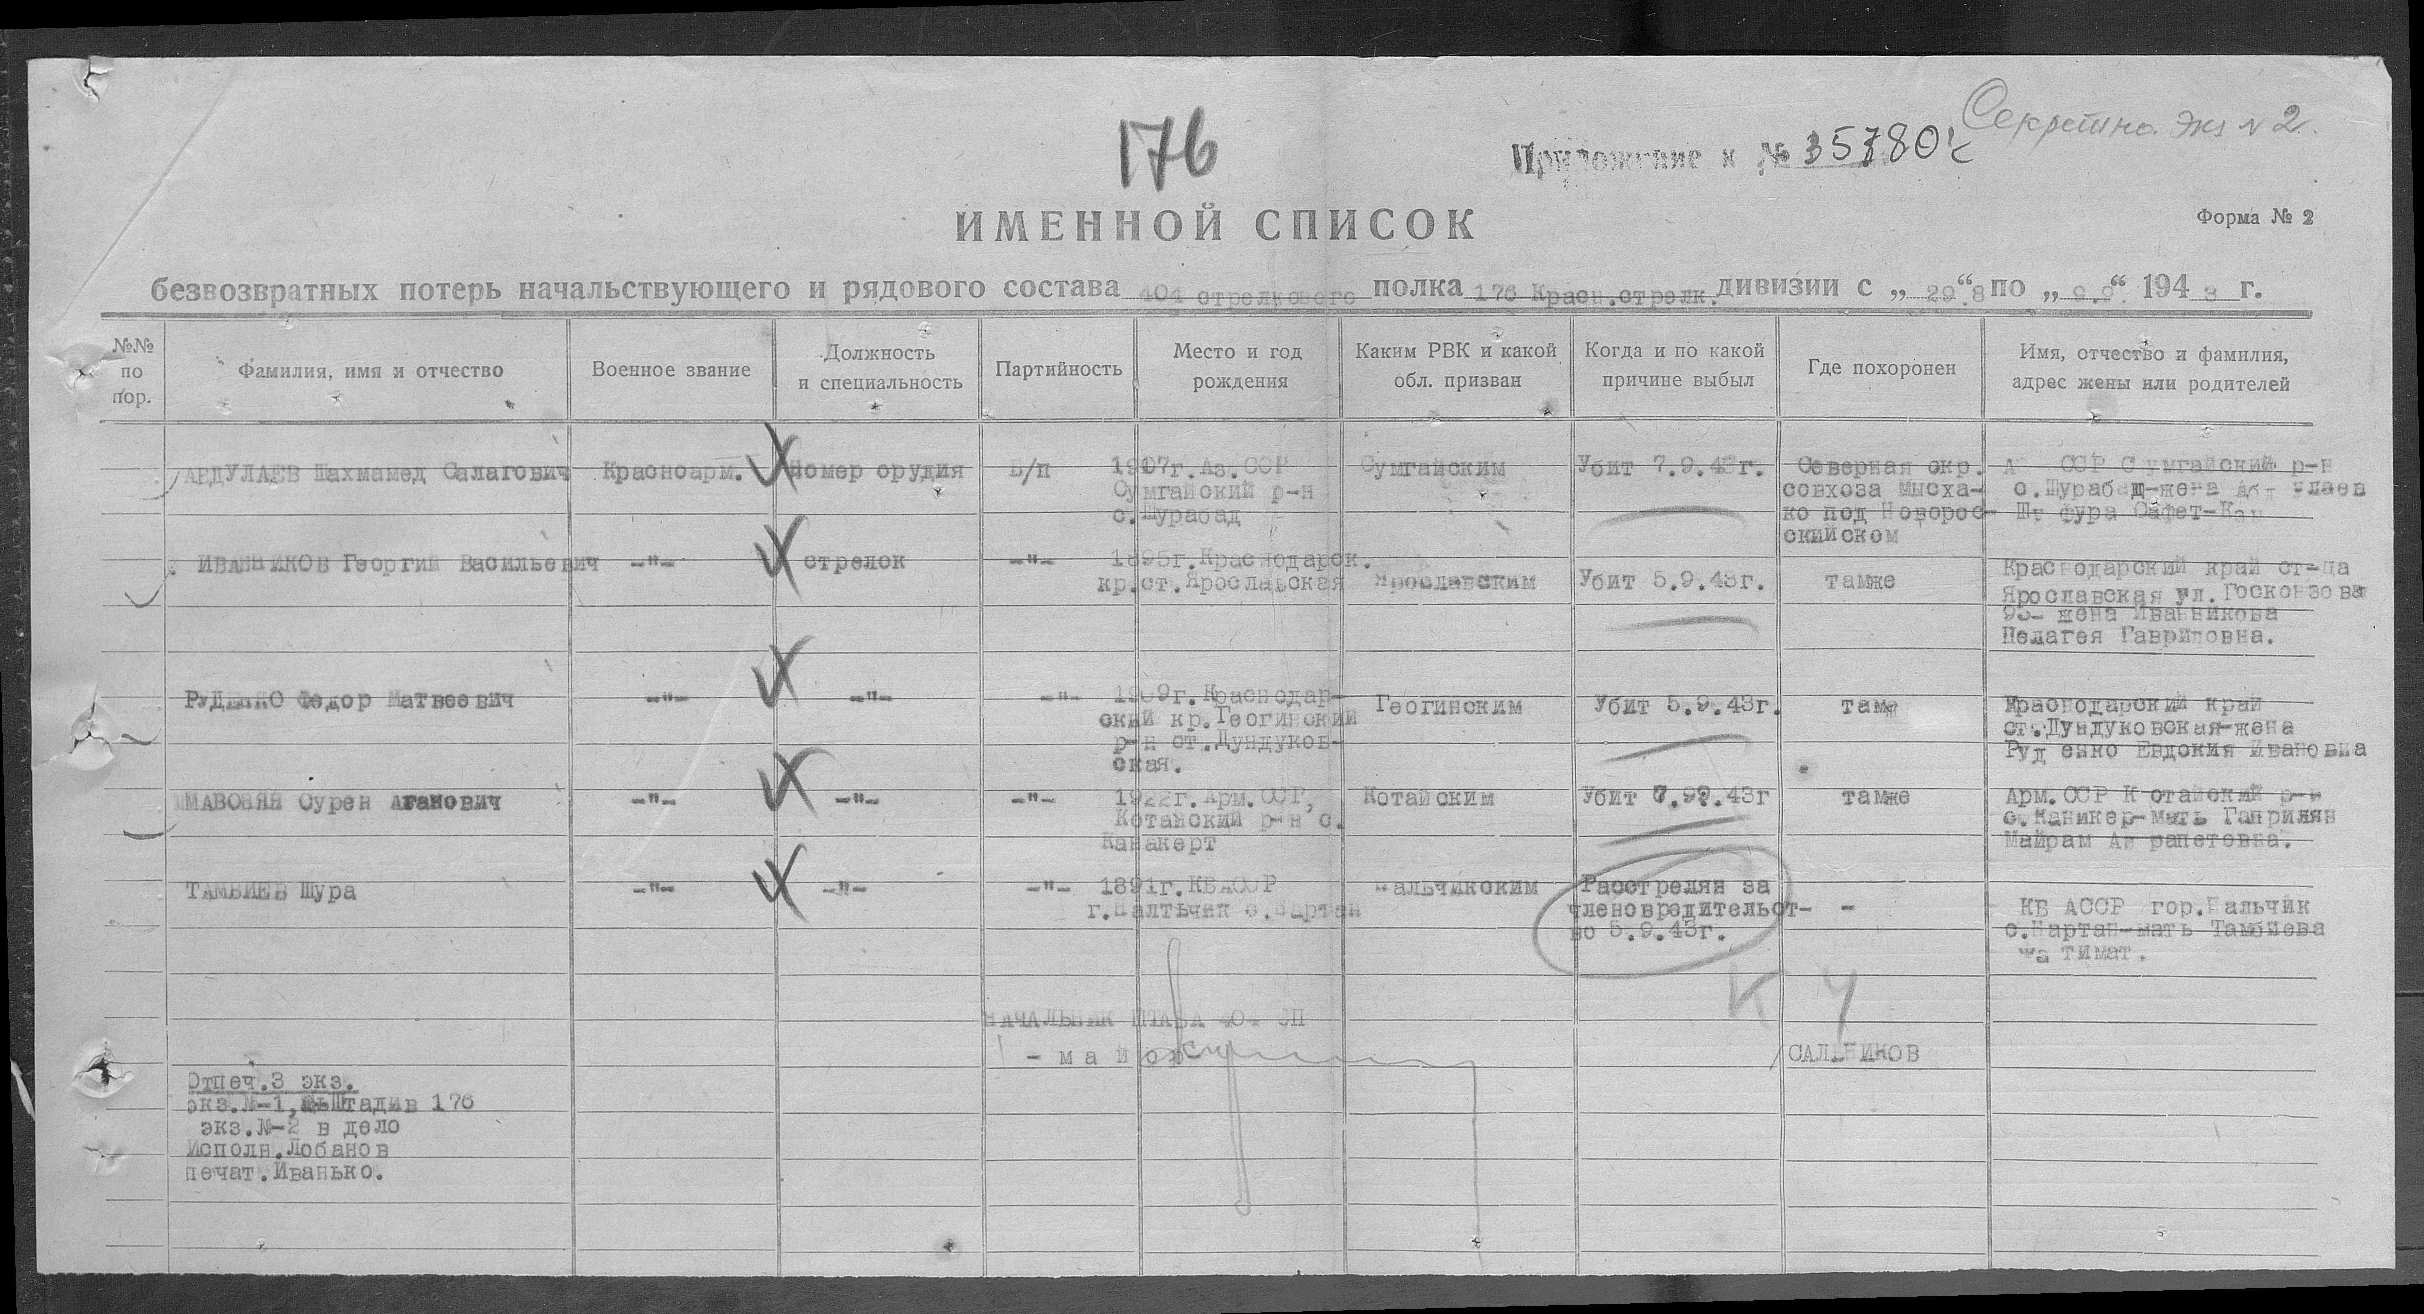 Секретно. Экз № 2.
176
Приложение к № 35780с
ИМЕННОЙ СПИСОК
Форма № 2
безвозвратных потерь начальствующего и рядового состава 404 стрелкового полка 176 Красн.стрелк. дивизии с „ 29.8 “ по „ 9.9 “ 1943 г.
№№ по пор.
Фамилия, имя и отчество
Военное звание
Должность и специальность
Партийность
Место и год рождения
Каким РВК и какой обл. призван
Когда и по какой причине выбыл
Где похоронен
Имя, отчество и фамилия, адрес жены или родителей
АБДУЛАЕВ Шахмамед Салагович Красноарм. Номер орудия Б/п 1907г.Аз.ССР Сумгайским Убит 7.9.43г. Северная окр. ССР Сумгайский р-н
Сумгайский р-н совхоза мысха- с.Шурабад-жена
с.Шурабад ко под Новорос- фура Сафет-
сийском
ИВАННИКОВ Георгий Васильевич -"- стрелок -"- 1895г.Краснодарск. Краснодарский край ст-ца
кр.ст.Ярославская Ярославским Убит 5.9.43г. тамже Ярославская ул.
93- жена Иванникова
Пелагея Гавриловна.
РУДЕНКО Федор Матвеевич -"- -"- -"- 1909г.Краснодар- Геогинским Убит 5.9.43г. тамже Краснодарский край
ский кр.Геогинский ст.Дундуковская-жена
р-н ст.Дундуков- Руденко Евдокия Ивановна
ская.
ШМАВОНЯН Сурен Аганович -"- -"- -"- 1922г.Арм.ССР, Котайским Убит 7.9.43г тамже Арм.ССР Котайский р-н
Котайский р-н с. с.Каникер-мать
Канакерт Майрам
ТАМБИЕВ Шура -"- -"- -"- 1891г.КБАССР Нальчикским Расстрелян за - КБ АССР гор.Нальчик
г.Налтьчик с.Нартан членовредительст- с.Нартан-мать Тамбиева
во 5.9.43г.
К Ч
НАЧАЛЬНИК ШТАБА 404 СП
- майор САЛЬНИКОВ
Отпеч.3 экз.
экз.№-1, Штадив 176
экз.№-2 в дело
Исполн.Лобанов
печат.Иванько.